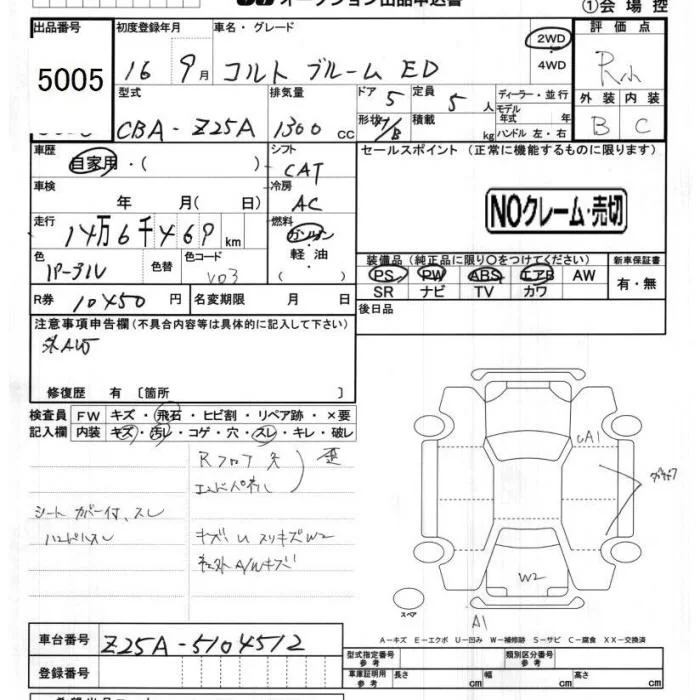 オークション出品申込書
①会場控
出品番号
5005
初度登録年月
16 9月
車名・グレード
コルト ブルーム ED
2WD
・
4WD
評価点
R小
外装 内装
B C
型式
CBA-Z25A
排気量
1300 cc
ドア 5
形状 H/B
定員 5 人
積載 kg
ディーラー・並行
モデル年式 年
ハンドル 左・右
車歴
自家用・( )
シフト
CAT
セールスポイント (正常に機能するものに限ります)
NOクレーム・売切
車検
年 月( 日)
冷房
AC
走行
14万6千469 km
燃料
ガソリン
・
軽油
・
( )
色
色替
カラーコード
V03
装備品(純正品に限り○をつけてください)
PS PW ABS エアB AW
SR ナビ TV カワ
新車保証書
有・無
R券 10450 円
名変期限 月 日
後日品
注意事項申告欄(不具合内容等は具体的に記入して下さい)
外AW
修復歴 有 〔箇所 〕
検査員
記入欄
FW キズ・飛石・ヒビ割・リペア跡・×要
内装 キズ・汚レ・コゲ・穴・スレ・キレ・破レ
Rフロア
エンドパネル
歪
シートカバー付、スレ
ハンドルスレ
キズ、U スリキズW2
社外A/Wキズ
UA1
W2
A1
スペア
A−キズ E−エクボ U−凹み W−補修跡 S−サビ C−腐食 XX−交換済
車台番号 Z25A-5104512
登録番号
型式指定番号
参考
類別区分番号
参考
車庫証明用
参考
長さ cm
幅 cm
高さ cm